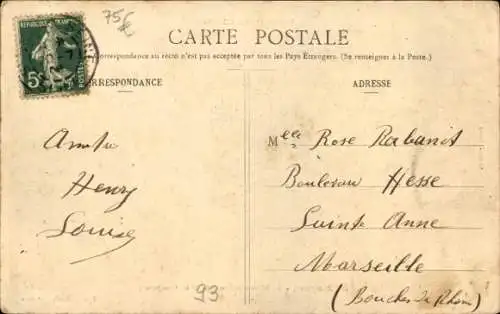 75c
RÉPUBLIQUE FRANÇAISE
5c
CARTE POSTALE
Correspondance au recto n'est pas acceptée par tous les Pays Étrangers. (Se renseigner à la Poste.)
CORRESPONDANCE
ADRESSE
Henry
Louise
93
Melle Rose Rabanit
Boulevau Hesse
Sainte Anne
Marseille
(Bouches du Rhône)